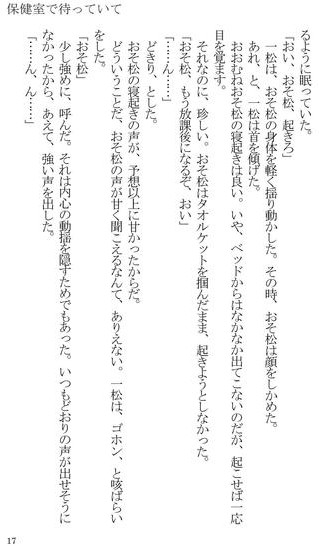 保健室で待っていて
るように眠っていた。
「おい、おそ松、起きろ」
　一松は、おそ松の身体を軽く揺り動かした。その時、おそ松は顔をしかめた。
　あれ、と、一松は首を傾げた。
　おおむねおそ松の寝起きは良い。いや、ベッドからはなかなか出てこないのだが、起こせば一応
目を覚ます。
　それなのに、珍しい。おそ松はタオルケットを掴んだまま、起きようとしなかった。
「おそ松、もう放課後になるぞ、おい」
「……ん……」
　どきり、とした。
　おそ松の寝起きの声が、予想以上に甘かったからだ。
　どういうことだ、おそ松の声が甘く聞こえるなんて、ありえない。一松は、ゴホン、と咳ばらい
をした。
「おそ松」
　少し強めに、呼んだ。それは内心の動揺を隠すためでもあった。いつもどおりの声が出せそうに
なかったから、あえて、強い声を出した。
「……ん、ん……」
17